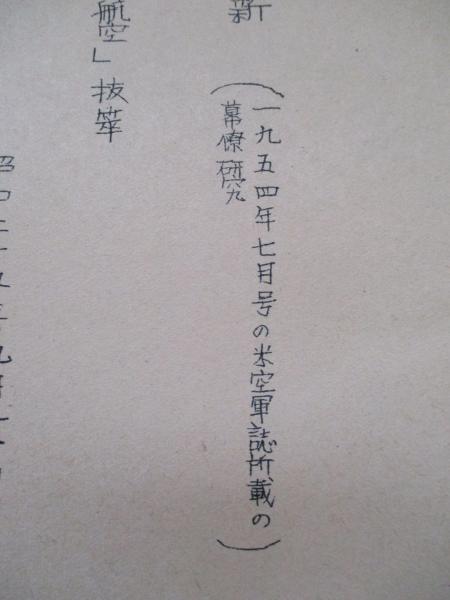 新
(一九五四年七月号の米空軍誌所載の
幕僚研究)
航空」抜萃